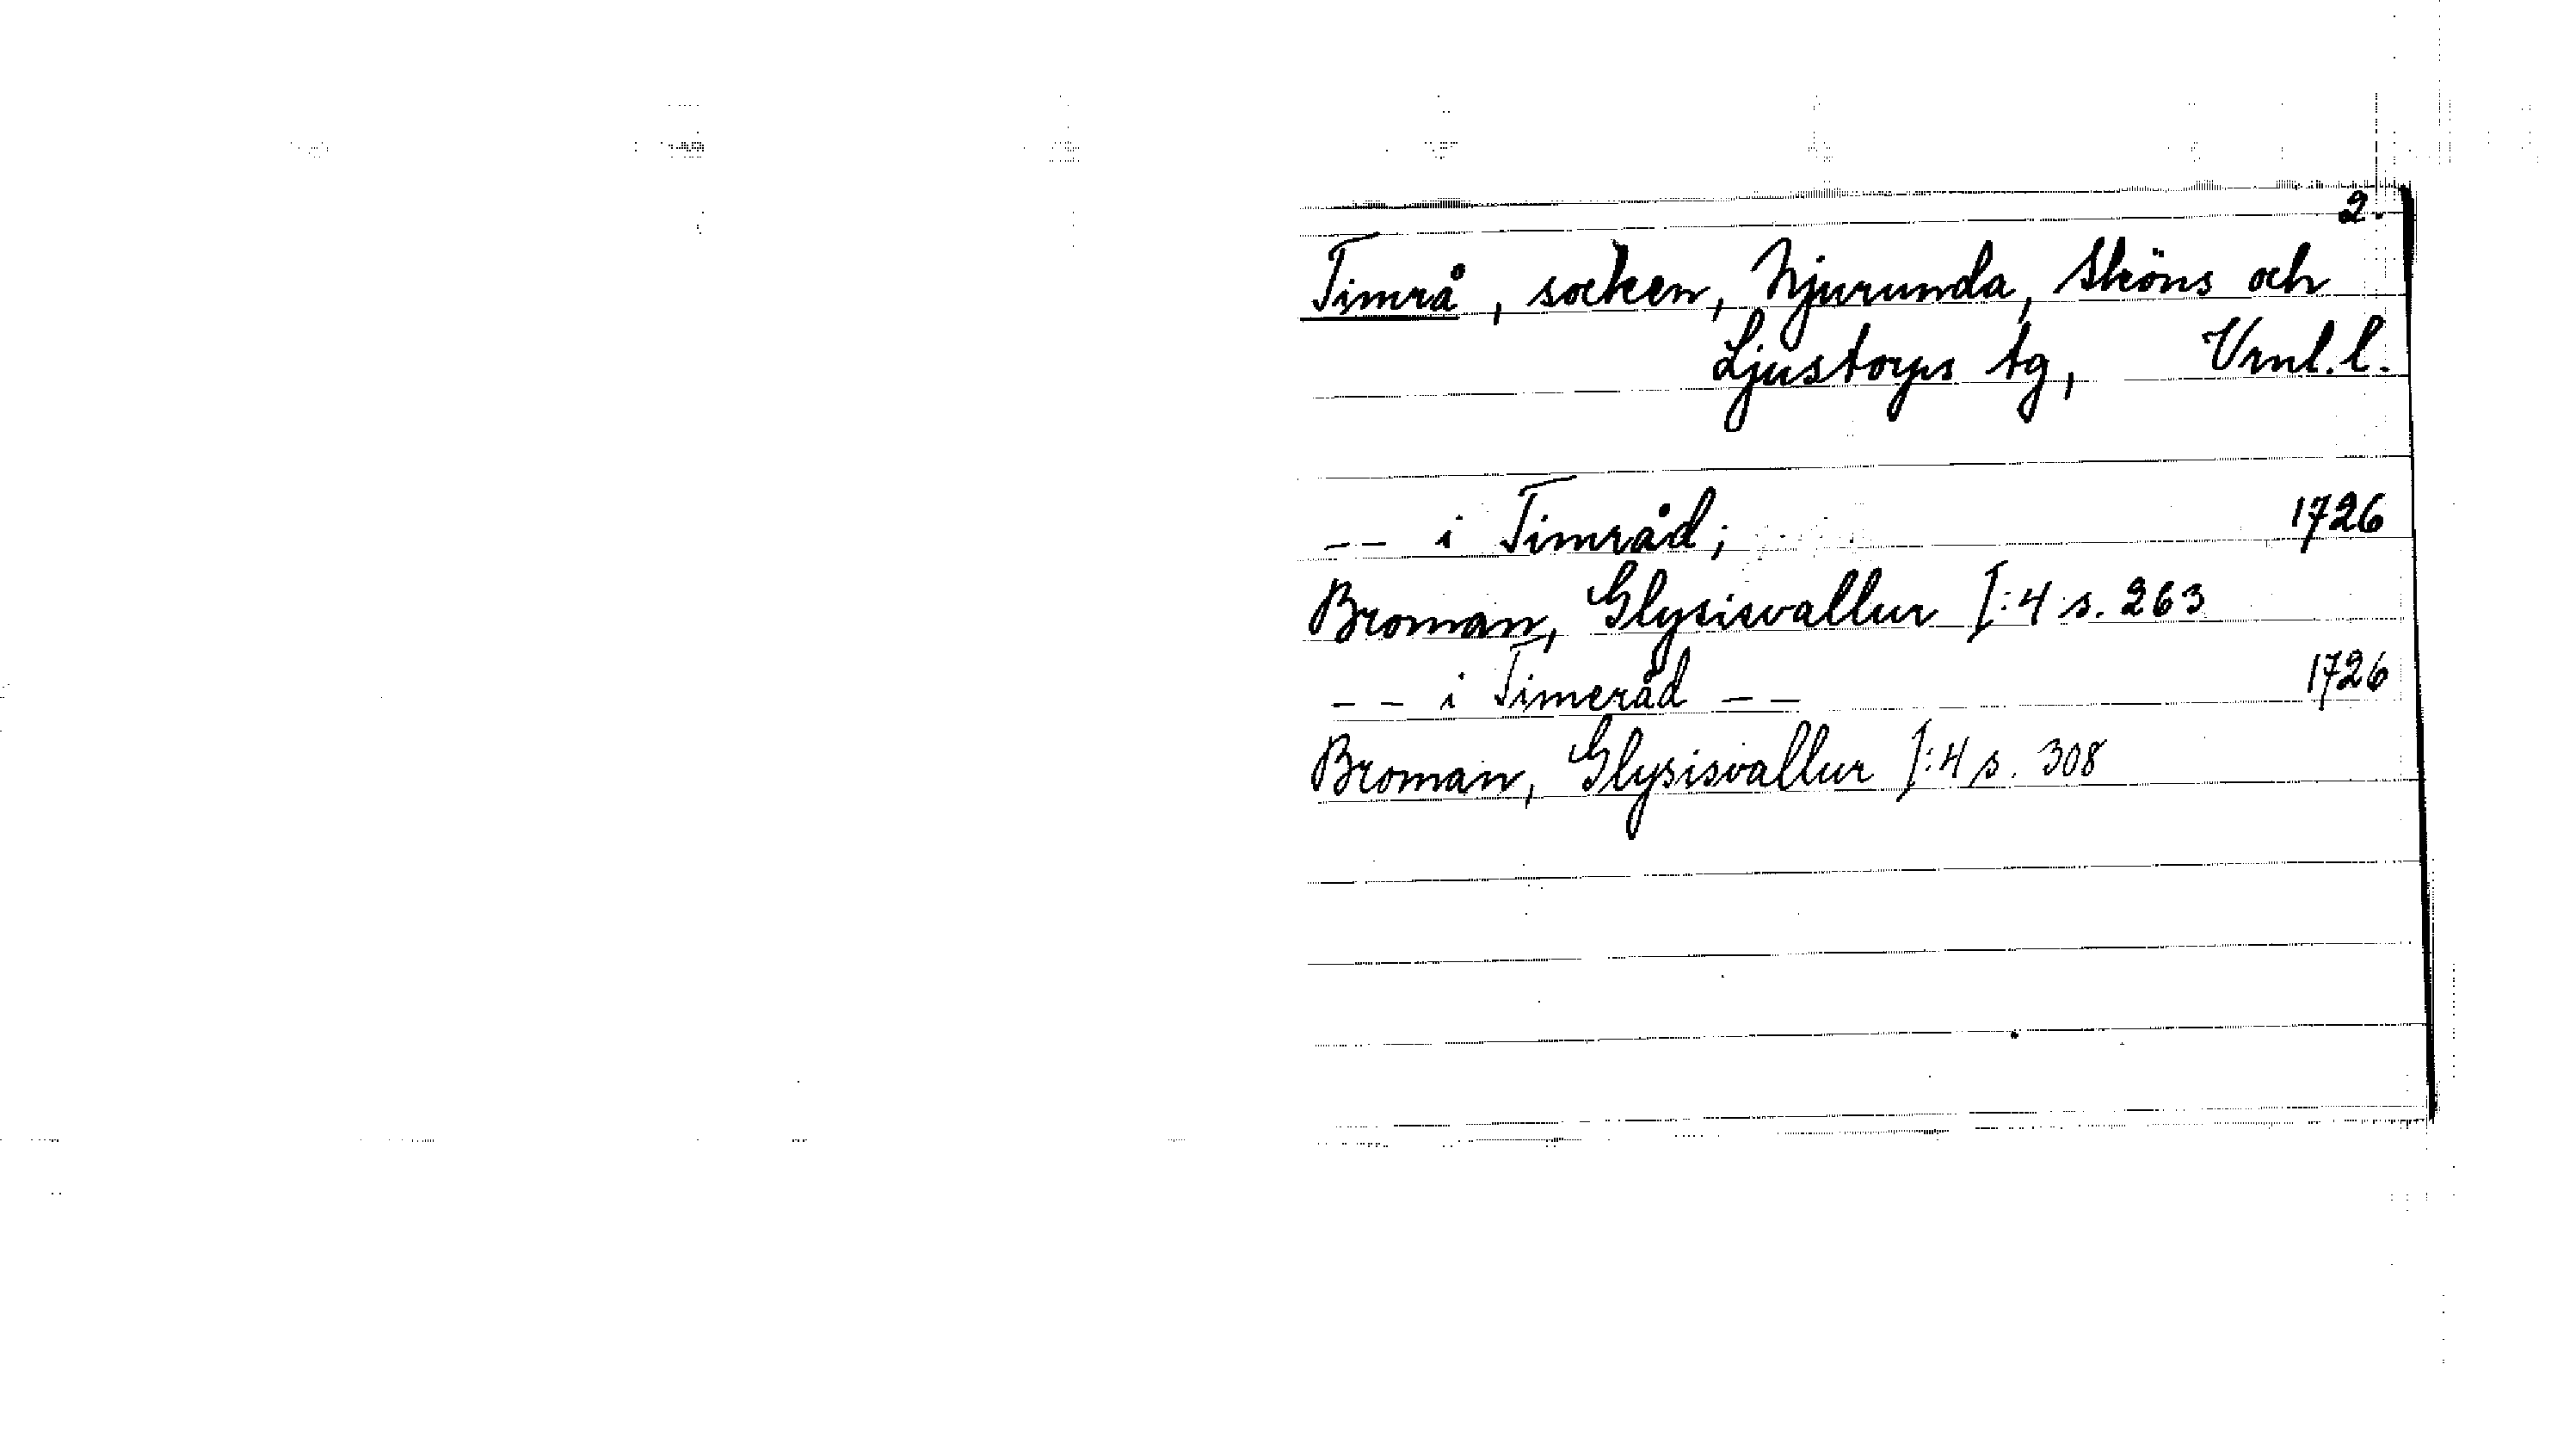 2.
Timrå, socken, Njurunda, Sköns och
Ljustorps tg, Vrnl. l.
-- i Timråd; 1726
Broman, Glysisvallur I:4 s. 263
-- i Timeråd -- 1726
Broman, Glysisvallur I:4 s. 308